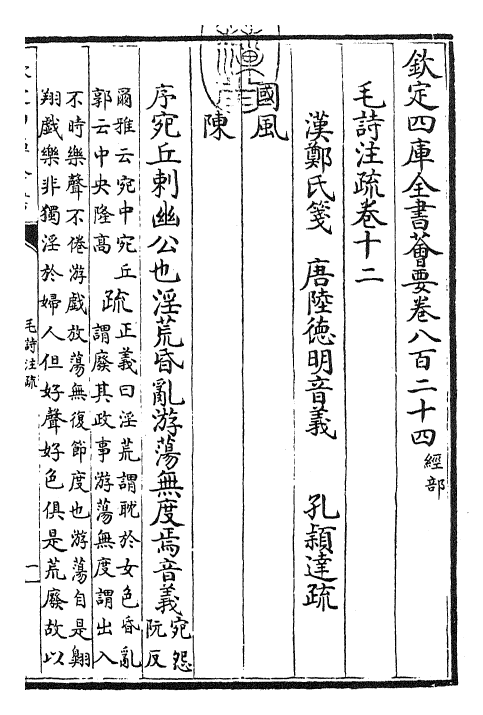 欽定四庫全書薈要卷八百二十四 經部
毛詩注疏卷十二
漢鄭氏箋 唐陸德明音義 孔穎達疏
國風
陳
序宛丘刺幽公也淫荒昏亂游蕩無度焉音義宛怨
阮反
爾雅云宛中宛丘
郭云中央隆高
疏正義曰淫荒謂耽於女色昏亂
謂廢其政事游蕩無度謂出入
不時樂聲不倦游戲放蕩無復節度也游蕩自是翺
翔戲樂非獨淫於婦人但好聲好色俱是荒廢故以
毛詩注疏
一